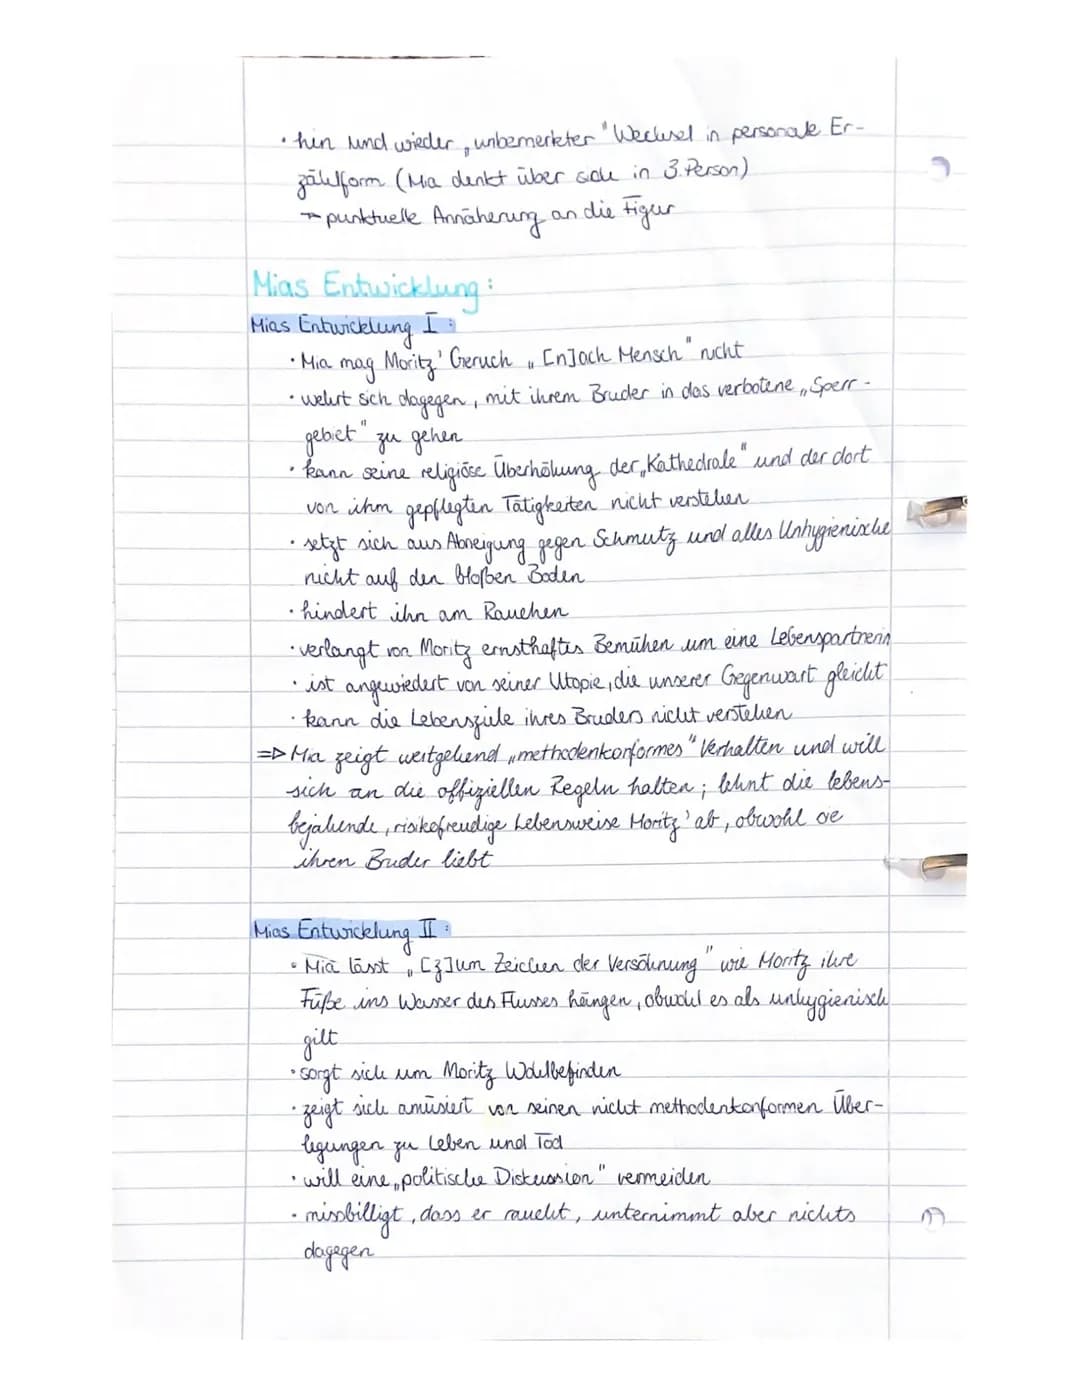 · hin und wieder „unbemerkter" Wechsel in personale Er-
zählform (Mia denkt über sich in 3. Person)
→ punktuelle Annäherung an die Figur
Mias Entwicklung:
Mias Entwicklung I:
· Mia mag Moritz' Geruch „[n]ach Mensch" nicht
· wehrt sich dagegen, mit ihrem Bruder in das verbotene „Sperr-
gebiet" zu gehen
· kann seine religiöse Überhöhung der „Kathedrale" und der dort
von ihm gepflegten Tätigkeiten nicht verstehen
· setzt sich aus Abneigung gegen Schmutz und alles Unhygienische
nicht auf den bloßen Boden
· hindert ihn am Rauchen
· verlangt von Moritz ernsthaftes Bemühen um eine Lebenspartnerin
· ist angewiedert von seiner Utopie, die unserer Gegenwart gleicht
· kann die Lebensziele ihres Bruders nicht verstehen
=> Mia zeigt weitgehend „methodenkonformes" Verhalten und will
sich an die offiziellen Regeln halten; lehnt die lebens-
bejahende, risikofreudige Lebensweise Moritz' ab, obwohl sie
ihren Bruder liebt
Mias Entwicklung II:
· Mia lässt „[z]um Zeichen der Versöhnung" wie Moritz ihre
Füße ins Wasser des Flusses hängen, obwohl es als unhygienisch
gilt
· sorgt sich um Moritz Wohlbefinden
· zeigt sich amüsiert von seinen nicht methodenkonformen Über-
legungen zu Leben und Tod
· will eine „politische Diskussion" vermeiden
· missbilligt, dass er raucht, unternimmt aber nichts
dagegen